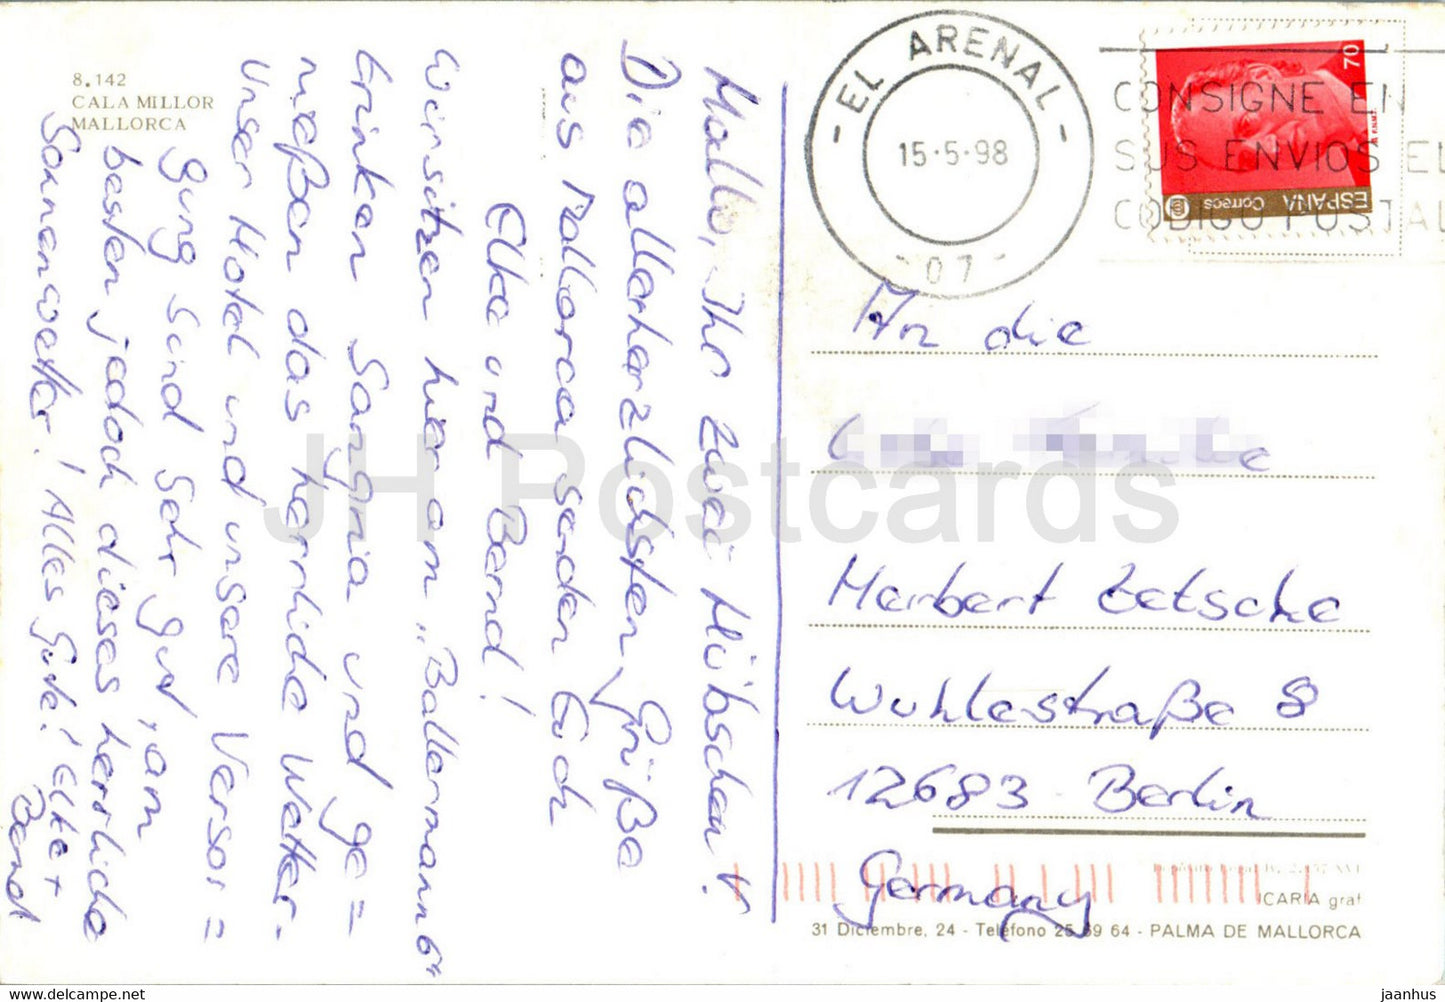 8.142
CALA MILLOR
MALLORCA
Hallo, Ihr zwei Hübschen!
Die allerherzlichsten Grüße
aus Mallorca senden Euch
Elke und Bernd!
Wir sitzen hier am „Ballermann 6"
trinken Sangria und ge=
nießen das herrliche Wetter.
Unser Hotel und unsere Versor=
gung sind sehr gut, am
besten jedoch dieses herrliche
Sonnenwetter! Alles Gute! Elke +
Bernd
- EL ARENAL -
15·5·98
- 07 -
CONSIGNE EN
SUS ENVIOS EL
CODIGO POSTAL
70
ESPAÑA Correos
An die
Herbert Zetsche
Wuhlestraße 8
12683 Berlin
Germany
ICARIA graf
31 Diciembre, 24 - Teléfono 25 69 64 - PALMA DE MALLORCA
JH Postcards
www.hippostcard.com/store/jaanhus
jaanhus